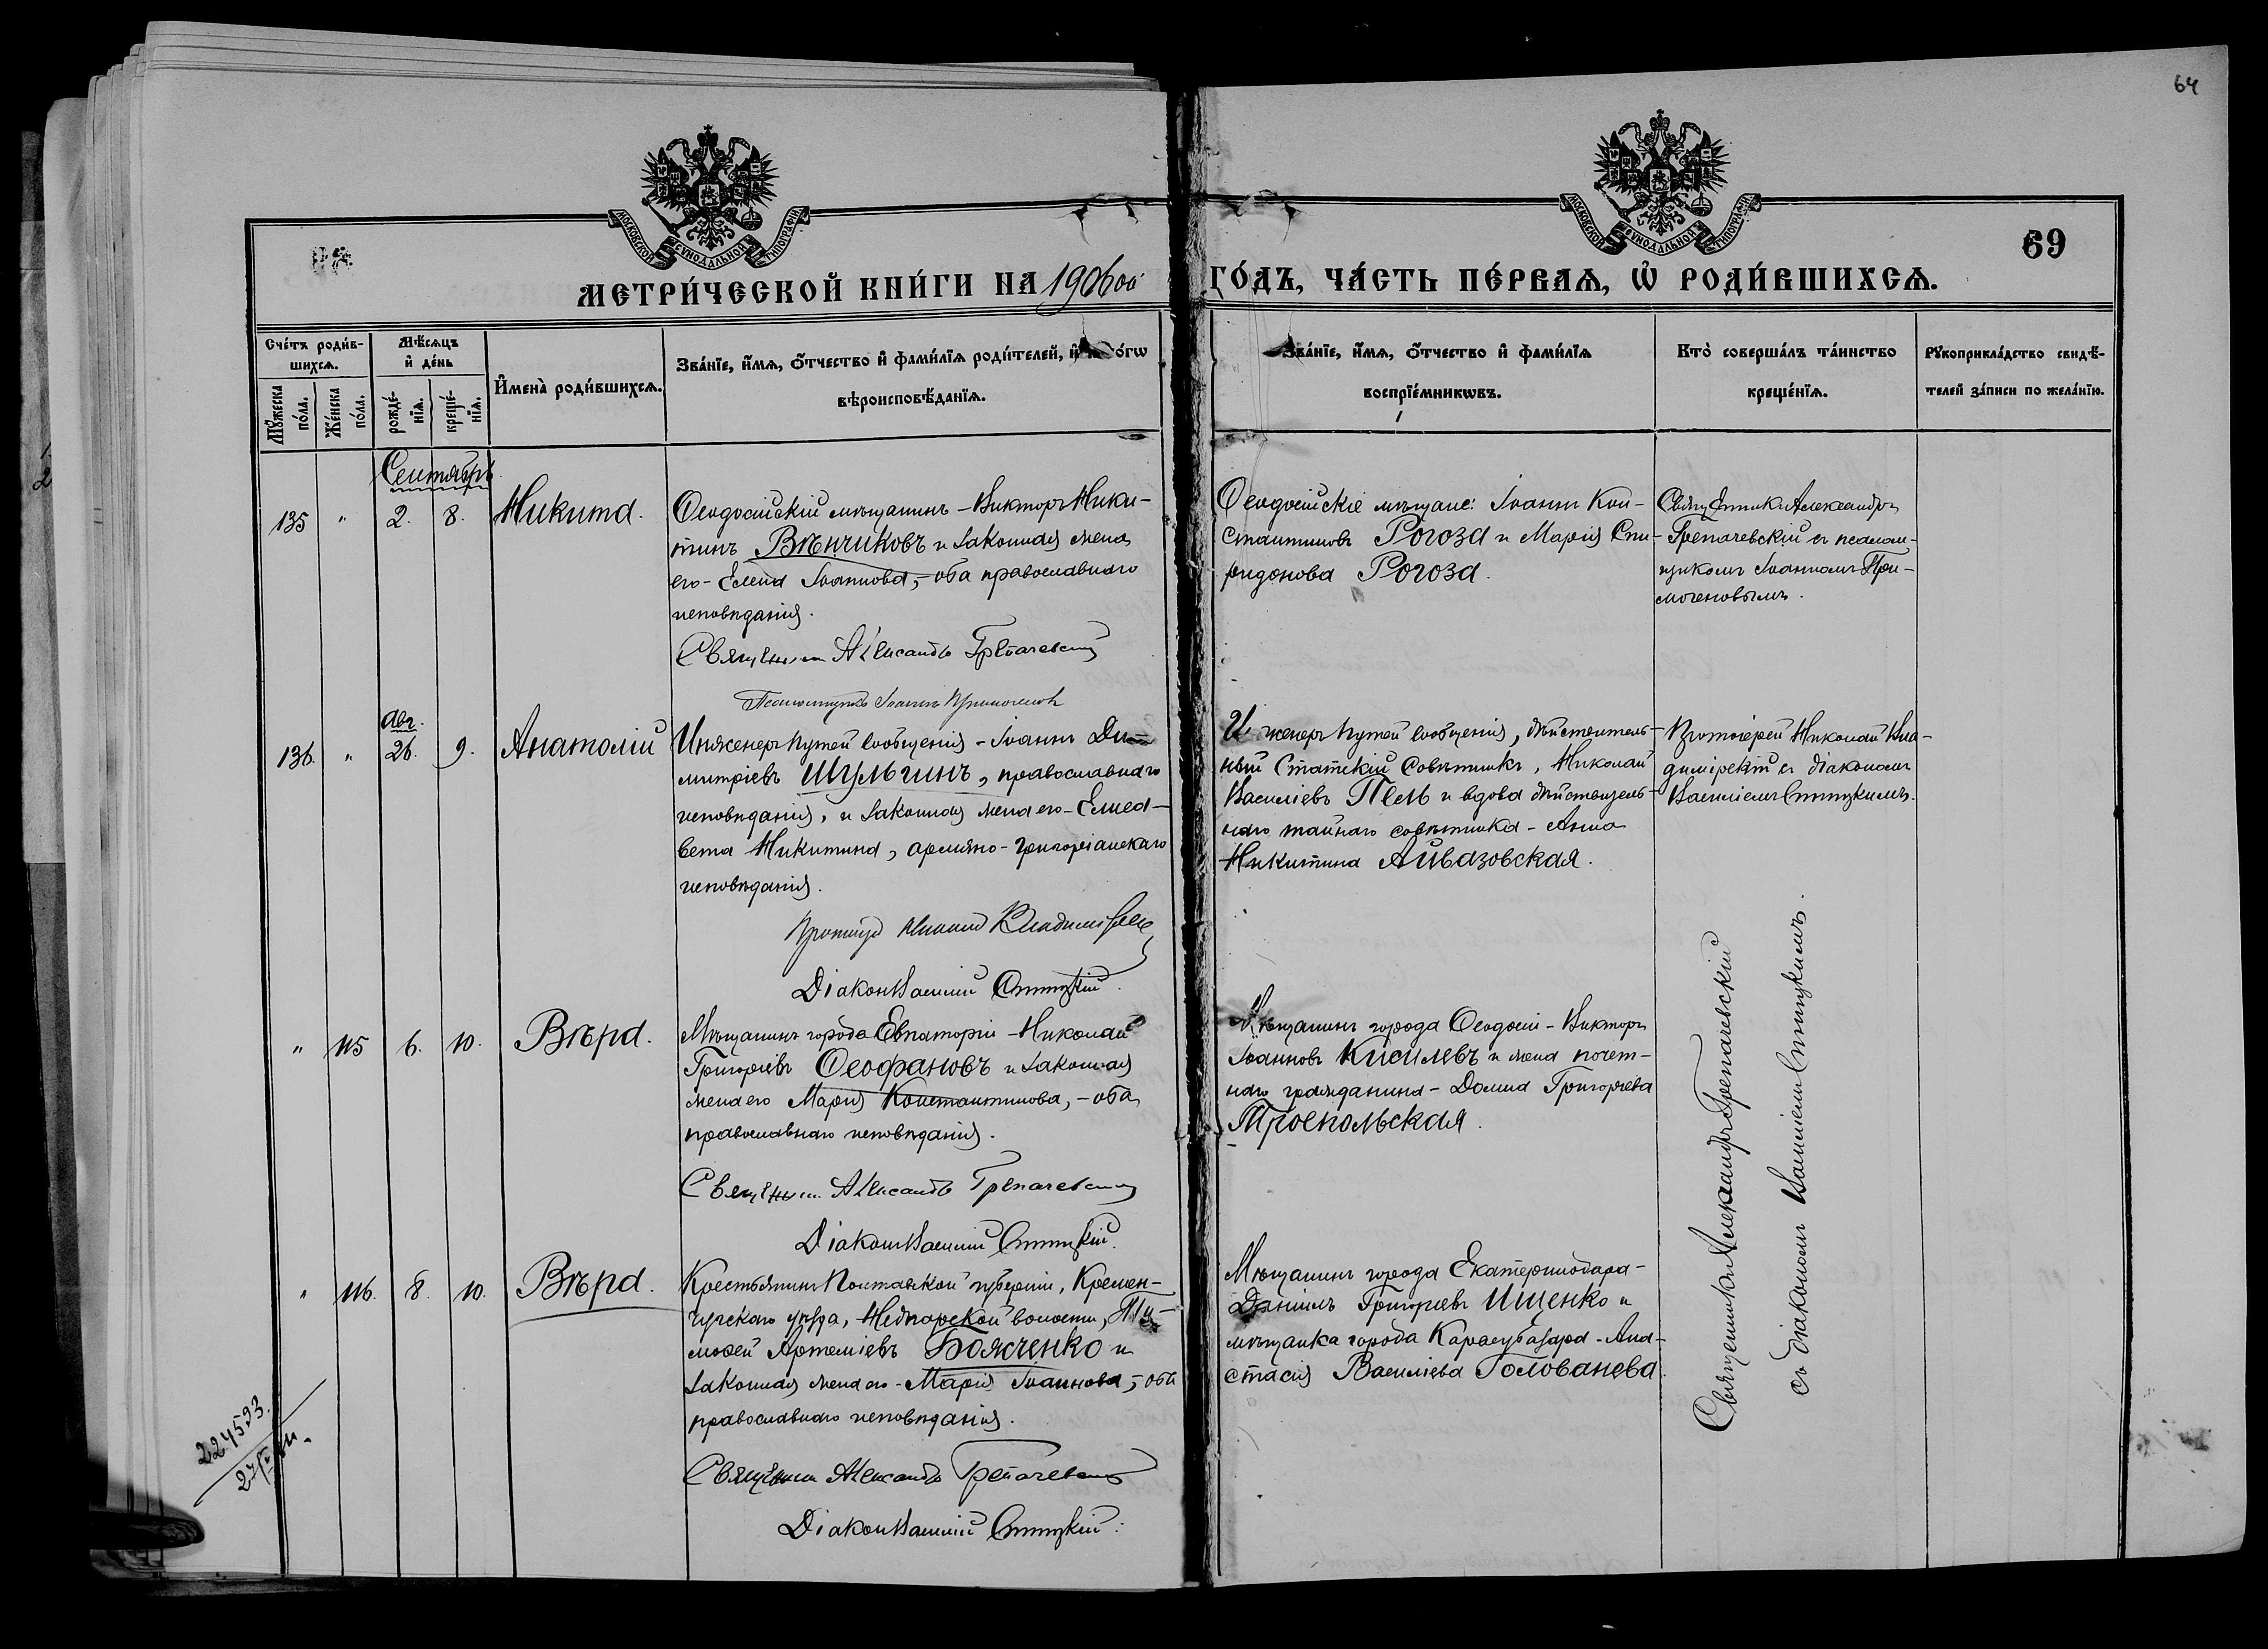 64
МОСКОВСКОЙ СѴНОДАЛЬНОЙ ТИПОГРАФІИ
МОСКОВСКОЙ СѴНОДАЛЬНОЙ ТИПОГРАФІИ
69
МЕТРИ́ЧЕСКОЙ КНИ́ГИ НА 1906ой ГО́ДЪ, ЧА́СТЬ ПЕ́РВАѦ, Ѡ҆ РОДИ́ВШИХСѦ.
Сче́тъ роди́в-
шихсѧ.
Мꙋ́жеска по́ла.
Же́нска по́ла.
Мѣ́сѧцъ
и҆ де́нь
рожде́-
нїѧ.
креще́-
нїѧ.
И҆мена̀ роди́вшихсѧ.
Зва́нїе, и҆́мѧ, ѻ҆́тчество и҆ фами́лїѧ роди́телей, и҆
вѣроисповѣ́данїѧ.
Зва́нїе, и҆́мѧ, ѻ҆́тчество и҆ фами́лїѧ
воспрїе́мникѡвъ.
Кто̀ соверша́лъ та́инство
креще́нїѧ.
Рꙋкоприкла́дство свидѣ́-
телей за́писи по жела́нїю.
Сентябрь
135 " 2. 8. Никита.
Ѳеодосійскій мѣщанинъ - Викторъ Ники-
тинъ Вѣнчиковъ и законная жена
его - Елена Іоаннова, - оба православнаго
исповѣданія.
Священникъ Александръ Грепачевскій
Псаломщикъ Іоаннъ
Ѳеодосійскіе мѣщане: Іоаннъ Кон-
стантиновъ Рогоза и Марія Спи-
ридонова Рогоза.
Священникъ Александръ
Грепачевскій съ псалом-
щикомъ Іоанномъ При-
могеновымъ.
Авг.
136. " 26. 9. Анатолій
Инженеръ путей сообщенія - Іоаннъ Ди-
митріевъ Шульгинъ, православнаго
исповѣданія, и законная жена его - Елиса-
вета Никитина, армяно-григоріанскаго
исповѣданія.
Протоіерей Николай Владимірскій
Діаконъ Василій
Инженеръ путей сообщенія, дѣйствитель-
ный Статскій Совѣтникъ, Николай
Василіевъ Пель и вдова дѣйствитель-
наго тайнаго совѣтника - Анна
Никитина Айвазовская.
Протоіерей Николай Вла-
димірскій съ діакономъ
Василіемъ
" 115 6. 10. Вѣра.
Мѣщанинъ города Евпаторіи - Николай
Григоріевъ Ѳеофановъ и законная
жена его Марія Константинова, - оба
православнаго исповѣданія.
Священникъ Александръ Грепачевскій
Діаконъ Василій
Мѣщанинъ города Ѳеодосіи - Викторъ
Іоанновъ Кисилевъ и жена почет-
наго гражданина - Домна Григорьева
Троепольская.
" 116. 8. 10. Вѣра.
Крестьянинъ Полтавской губерніи, Кремен-
чугскаго уѣзда, волости, Ти-
моѳей Артеміевъ Божченко и
законная жена его - Марія Іоаннова, - оба
православнаго исповѣданія.
Священникъ Александръ Грепачевскій
Діаконъ Василій
Мѣщанинъ города Екатеринодара -
Даніилъ Григоріевъ Ищенко и
мѣщанка города Карасубазара - Ана-
стасія Василіева Голованева.
Священникъ Александръ Грепачевскій
съ діакономъ Василіемъ
224593.